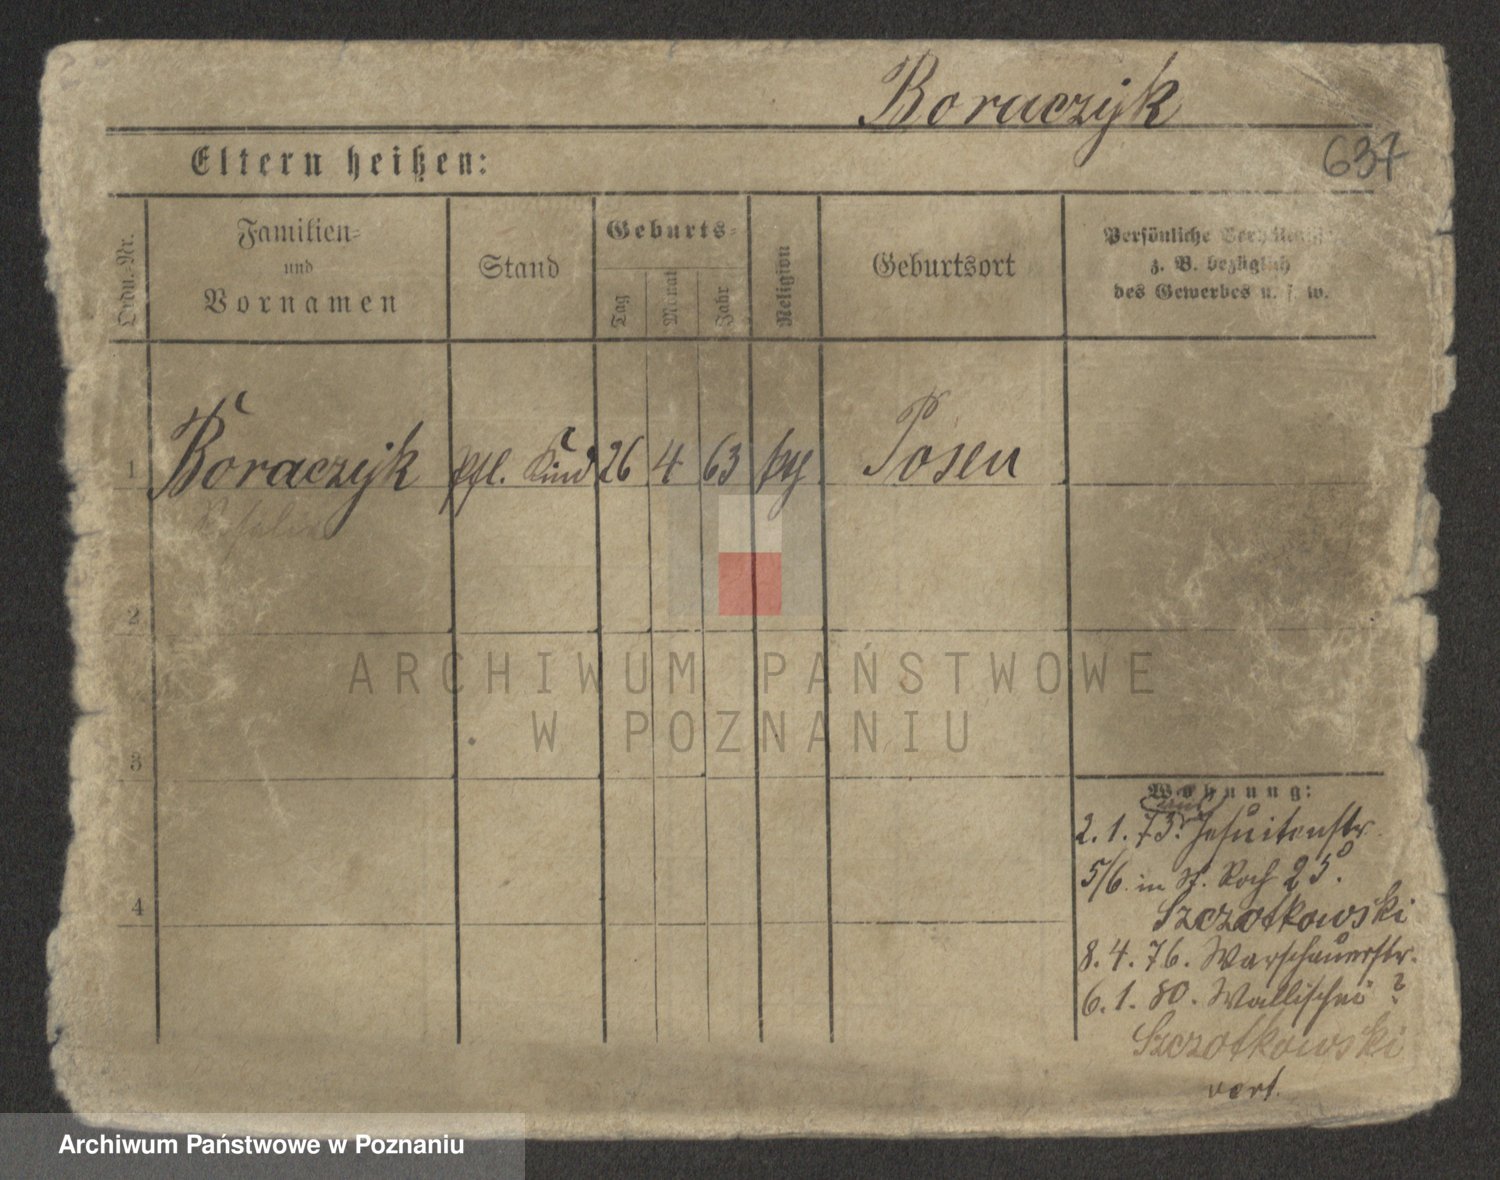 Boraczyk
637
Eltern heißen:
Ordn.-Nr.
Familien-
und
Vornamen
Stand
Geburts-
Tag
Monat
Jahr
Religion
Geburtsort
Persönliche Verhältnisse
z. B. bezüglich
des Gewerbes u. s. w.
1 Boraczyk pfl. Kind 26 4 63 Posen
2
3
4
Wohnung:
2. 1. 73. Jesuitenstr.
5/6. in St. Roch 25.
Szczotkowski
8. 4. 76. Warschauerstr.
6. 1. 80. Wallischei ?
Szczotkowski
vert.
ARCHIWUM PAŃSTWOWE
W POZNANIU
Archiwum Państwowe w Poznaniu